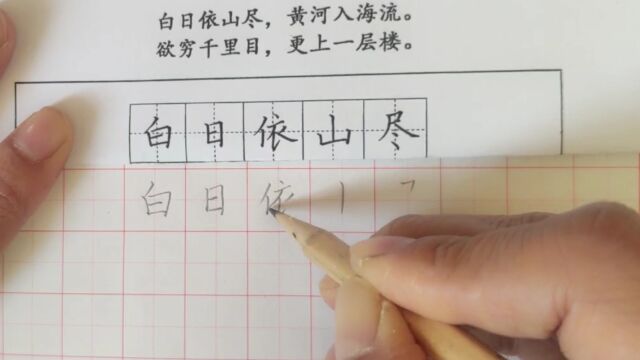 白日依山尽，黄河入海流。
欲穷千里目，更上一层楼。
白日依山尽
白日依